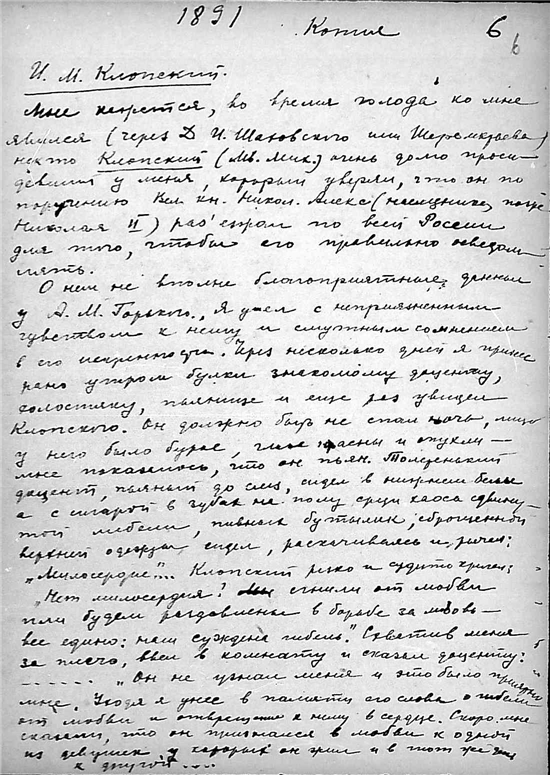 1891
Копия
6
6
И. М. Клопский.
Мне кажется, во время голода ко мне
явился (через Д. И. Шаховского или Шереметьева)
некто Клопский (Ив. Мих.) очень долго проси-
девший у меня, который уверял, что он по
поручению Вел. кн. Никол. Алекс (наследника, потом
Николая II) раз'езжал по всей России
для того, чтобы его правильно осведом-
лять.
О нем не вполне благоприятные данные
у А. М. Горького. "Я ушел с неприязненным
чувством к нему и смутным сомнением
в его искренности. Через несколько дней я принес
рано утром булки знакомому доценту,
холостяку, пьянице и еще раз увидел
Клопского. Он должно быть не спал ночь, лицо
у него было бурое, глаза красны и опухли –
мне показалось, что он пьян. Толстенький
доцент, пьяный до слез, сидел в нижнем белье
и с гитарой в руках на полу среди хаоса сдвину-
той мебели, пивных бутылок, сброшенной
верхней одежды, сидел, раскачиваясь и рычал:
"Милосердие"... Клопский резко и сердито кричал:
"Нет милосердия! Мы сгинем от любви
или будем раздавлены в борьбе за любовь –
все едино: нам суждена гибель". Схватив меня
за плечо, ввел в комнату и сказал доценту:
....... "Он не узнал меня и это было приятно
мне. Уходя я унес в памяти его слова о гибели
от любви и отвращение к нему в сердце. Скоро мне
сказали, что он признался в любви к одной
из девушек у которых он жил и в тот же день
к другой....